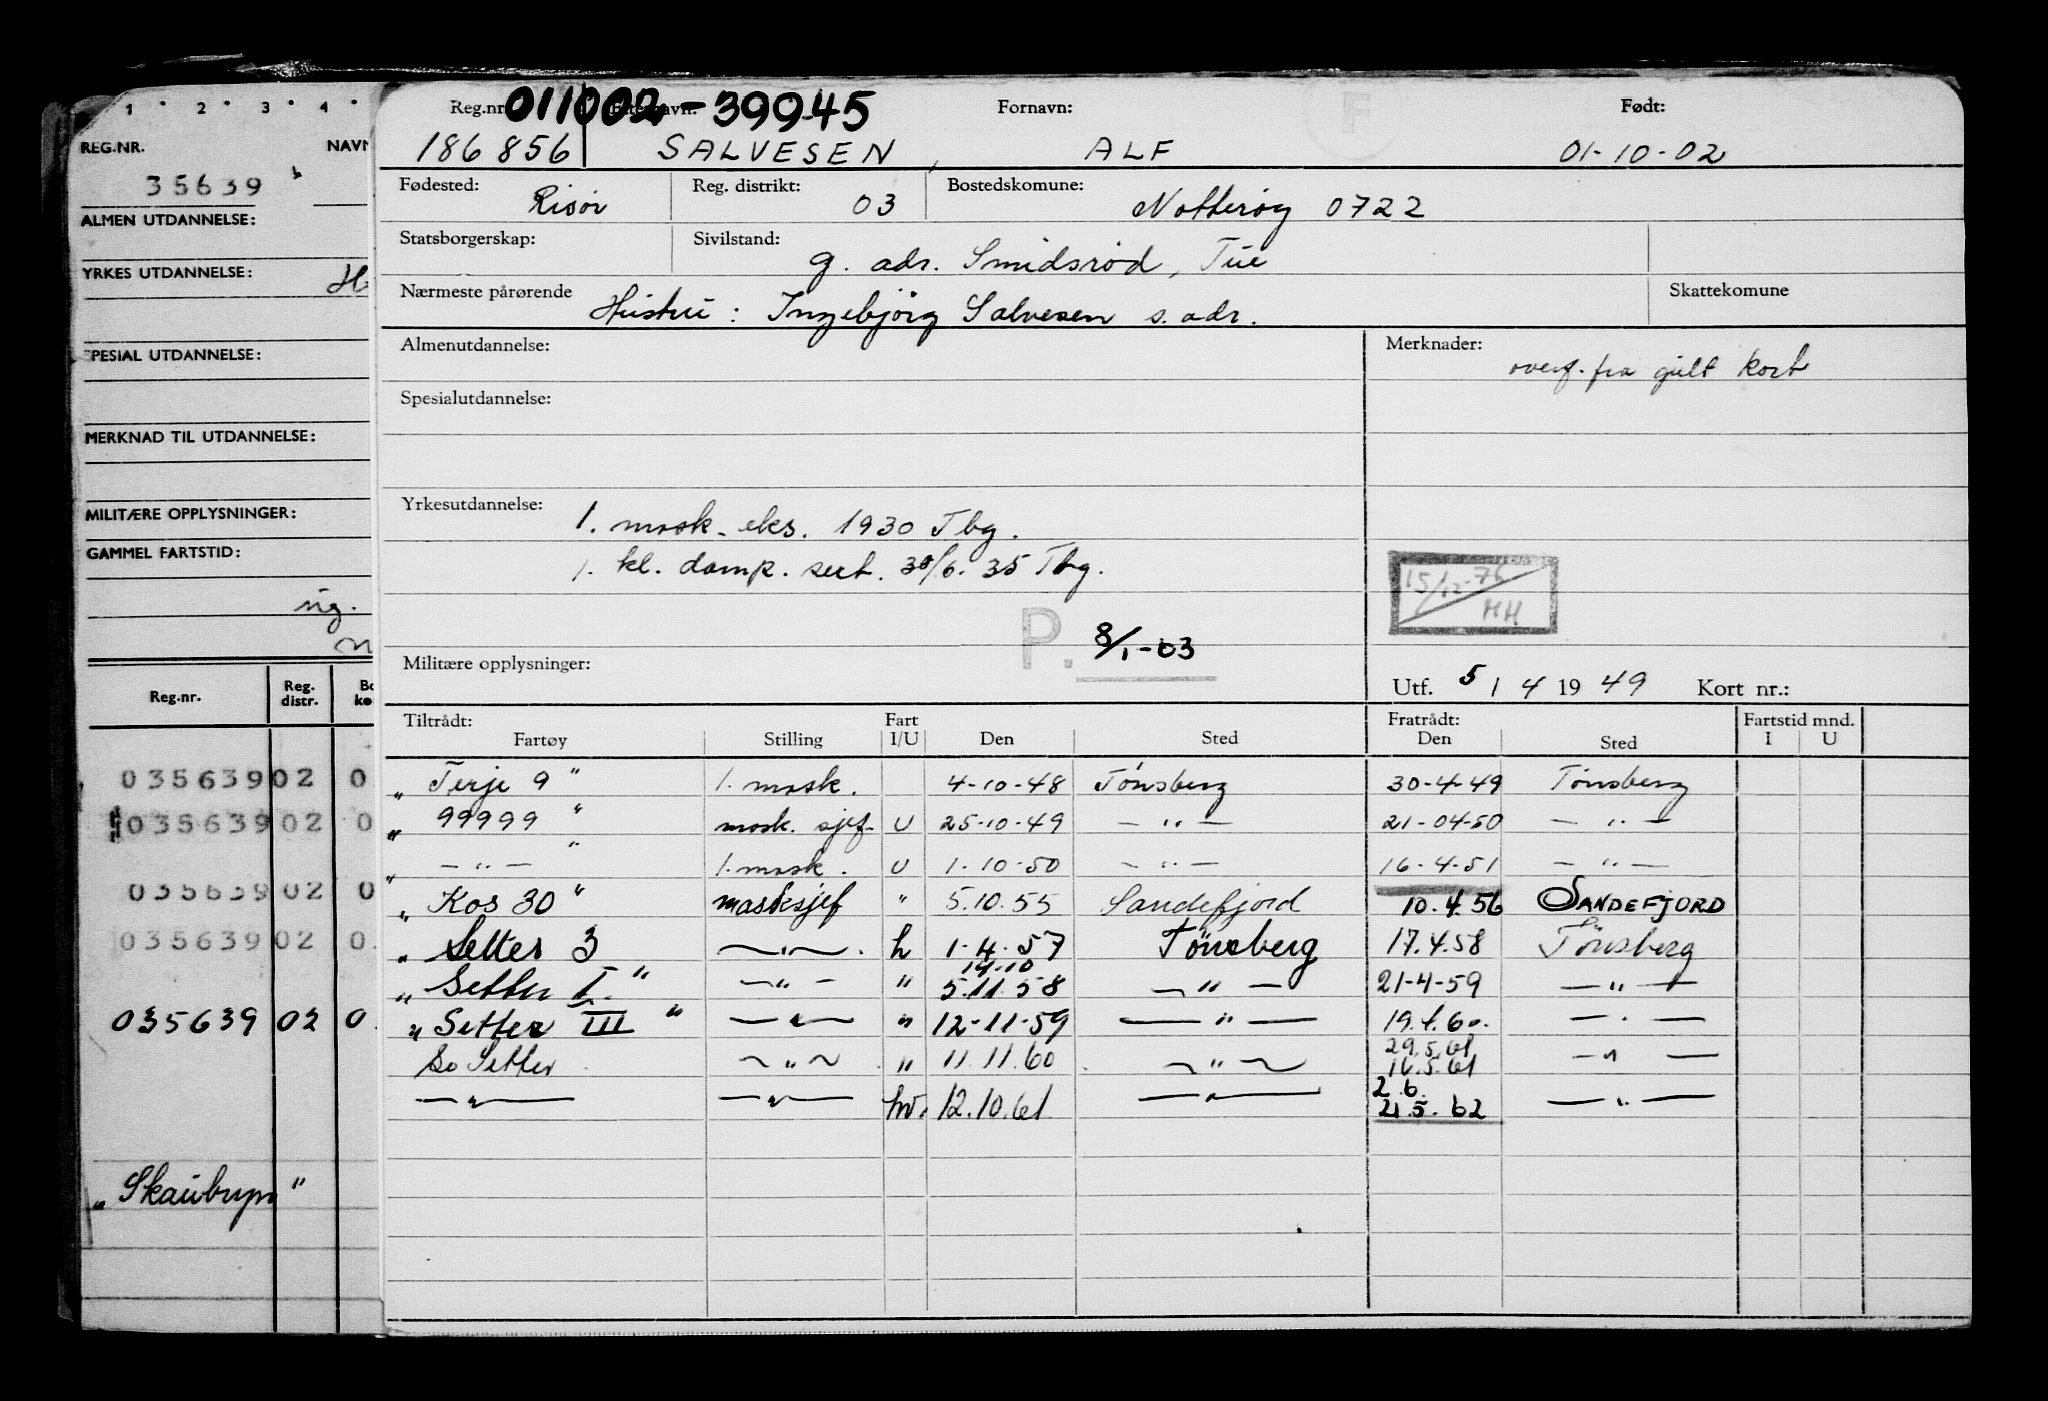 1 · 2 · 3 · 4 ·
REG.NR. NAVN
35639
ALMEN UTDANNELSE:
YRKES UTDANNELSE:
SPESIAL UTDANNELSE:
MERKNAD TIL UTDANNELSE:
MILITÆRE OPPLYSNINGER:
GAMMEL FARTSTID:
Reg.nr. Reg. distr.
035639 02 0
035639 02 0
035639 02 0
035639 02 0
035639 02 0
„ Skaubryn "
Reg.nr. 011002-39945 Fornavn: Født:
186856 SALVESEN, ALF 01-10-02
Fødested: Risör Reg. distrikt: 03 Bostedskomune: Nötteröy 0722
Statsborgerskap: Sivilstand: g. adr. Smidsröd, Tue
Nærmeste pårørende Hustru: Ingebjörg Salvesen s. adr. Skattekomune
Almenutdannelse: Merknader:
overf. fra gult kort
Spesialutdannelse:
Yrkesutdannelse: 1. mask. eks. 1930 Tbg.
1. kl. damp. sert. 30/6. 35 Tbg.
15/12-76
HH
P. 8/1-03
Militære opplysninger:
Utf. 5 / 4 1949 Kort nr.:
Tiltrådt: Fart Fratrådt: Fartstid mnd.
Fartøy Stilling I/U Den Sted Den Sted I U
„ Terje 9 " 1. mask. 4-10-48 Tönsberg 30-4-49 Tönsberg
„ 99999 " mask. sjef- U 25-10-49 — " — 21-04-50 — " —
„ — " — " 1. mask. U 1-10-50 — " — 16-4-51 — " —
„ Kos 30 " masksjef " 5.10.55 Sandefjord 10.4.56 SANDEFJORD
„ Setter 3 — " — . h 1-4-57 Tönsberg 17.4.58 Tönsberg
14-10
„ Setter I. " — " — " 5.11.58 — " — 21-4-59 — " —
„ Setter III " — " — " 12-11-59 — " — 19.4.60. — " —
29.5.61
So Setter — " — " 11.11.60 — " — 16.5.61 — " —
2.6.
— " — — " — hv. 12.10.61 — " — 21.5.62 — " —